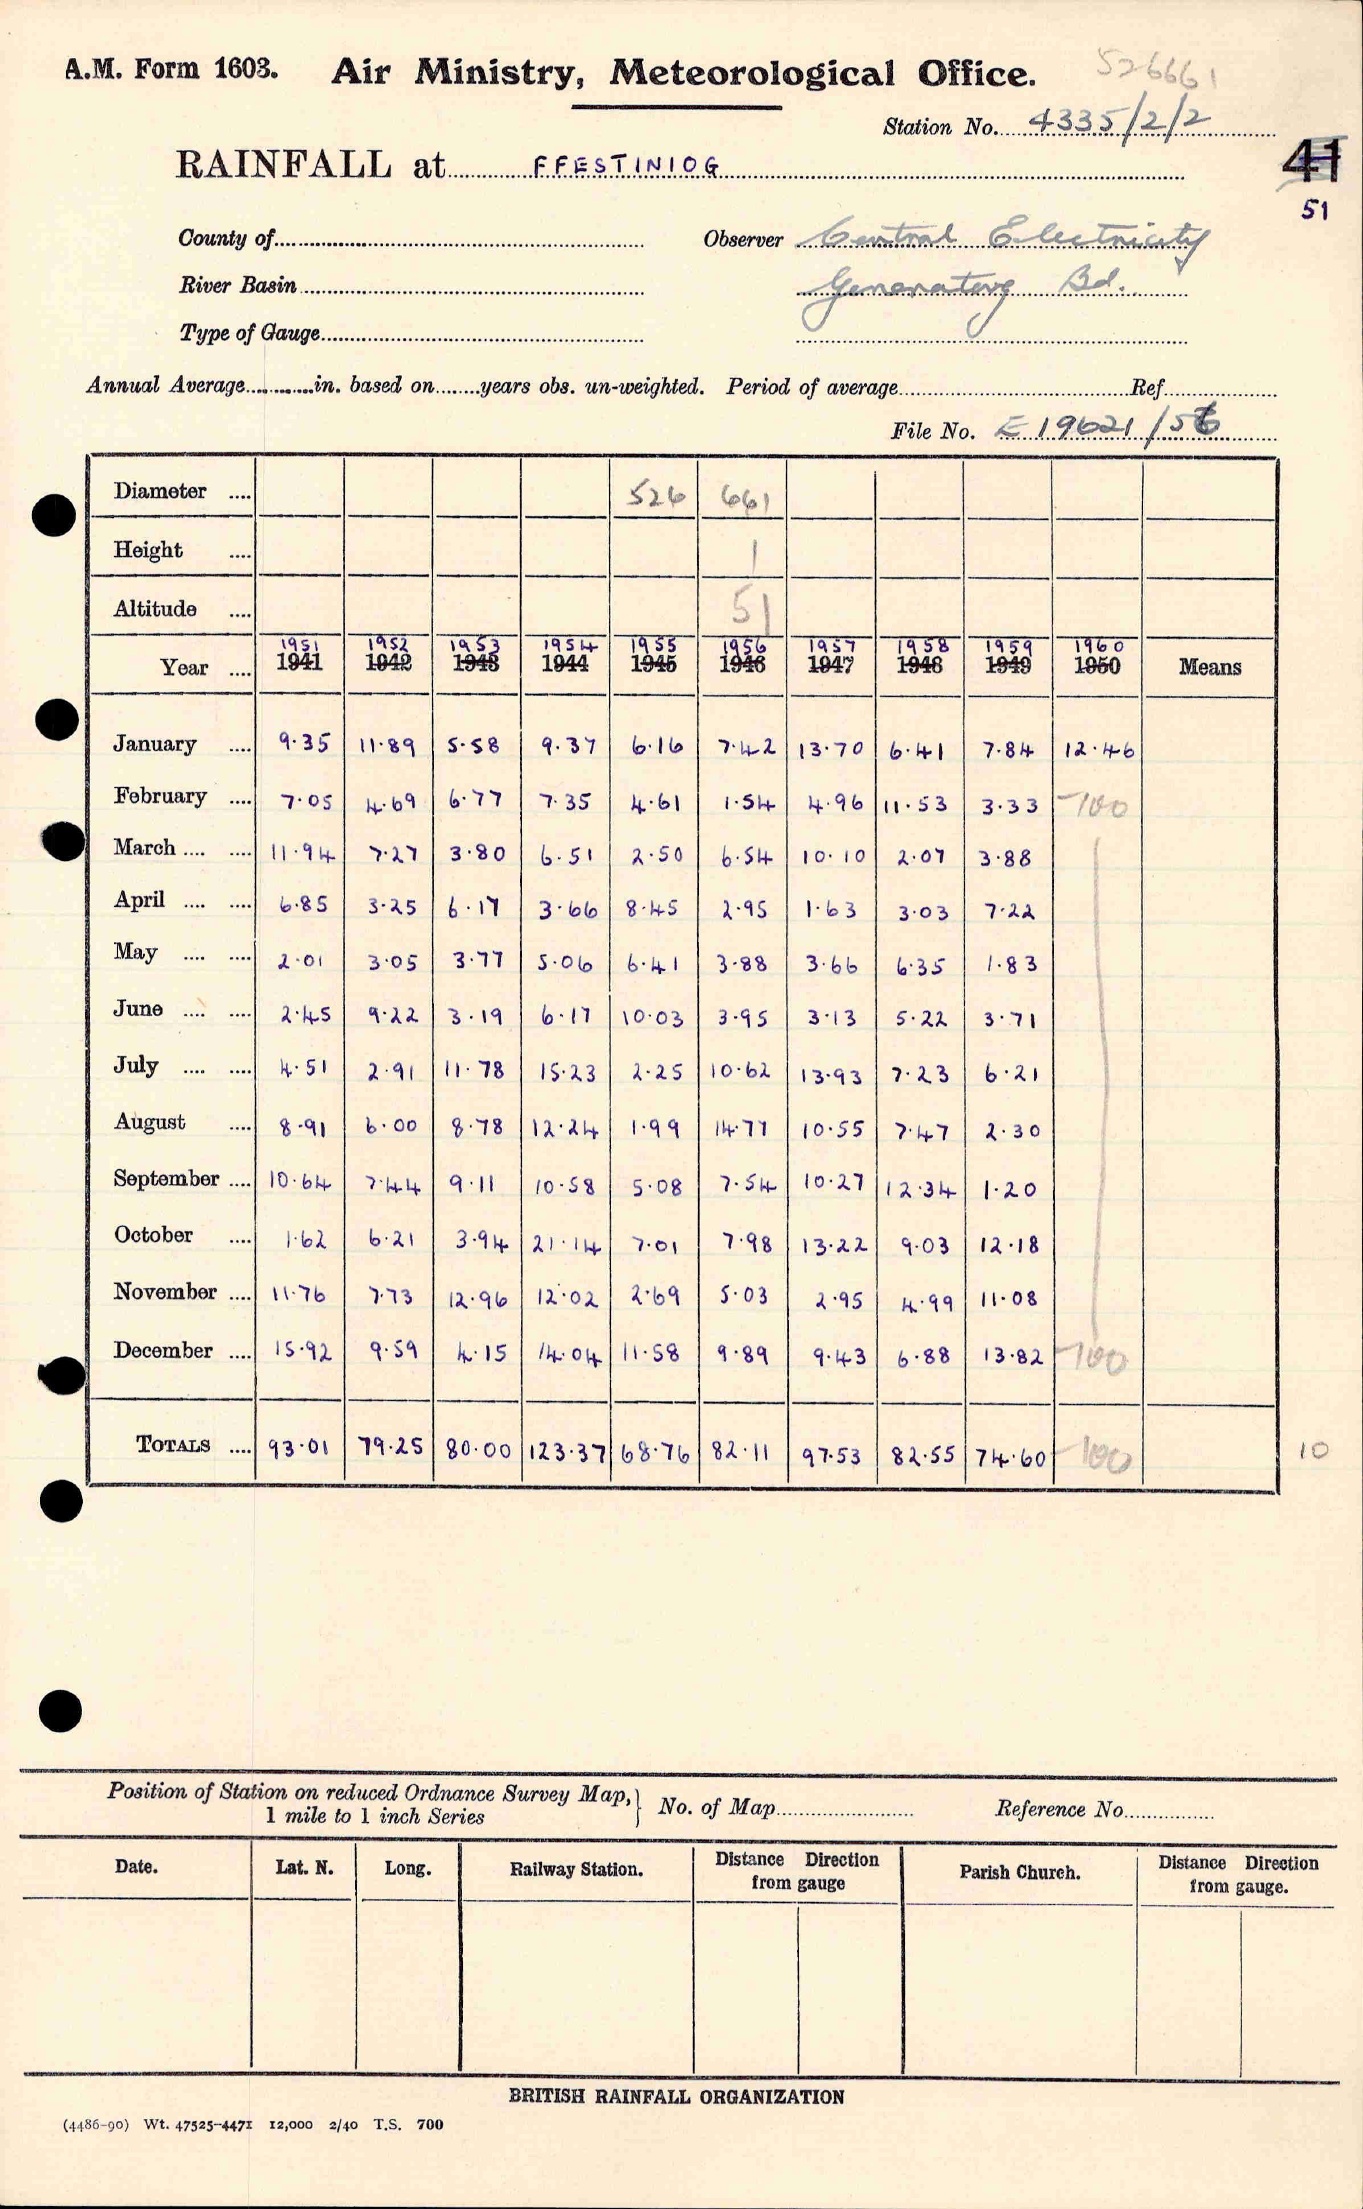 526661
A.M. Form 1603. Air Ministry, Meteorological Office.
Station No. 4335/2/2
RAINFALL at FFESTINIOG
41
51
County of Observer Central Electricity
River Basin Generating Bd.
Type of Gauge
Annual Average in. based on years obs. un-weighted. Period of average Ref
File No. E 19621/56
Diameter .... 526 661
Height .... 1
Altitude .... 51
1951 1952 1953 1954 1955 1956 1957 1958 1959 1960
Year .... 1941 1942 1943 1944 1945 1946 1947 1948 1949 1950 Means
January .... 9.35 11.89 5.58 9.37 6.16 7.42 13.70 6.41 7.84 12.46
February .... 7.05 4.69 6.77 7.35 4.61 1.54 4.96 11.53 3.33 -100
March .... .... 11.94 7.27 3.80 6.51 2.50 6.54 10.10 2.07 3.88
April .... .... 6.85 3.25 6.17 3.66 8.45 2.95 1.63 3.03 7.22
May .... .... 2.01 3.05 3.77 5.06 6.41 3.88 3.66 6.35 1.83
June .... .... 2.45 9.22 3.19 6.17 10.03 3.95 3.13 5.22 3.71
July .... .... 4.51 2.91 11.78 15.23 2.25 10.62 13.93 7.23 6.21
August .... 8.91 6.00 8.78 12.24 1.99 14.77 10.55 7.47 2.30
September .... 10.64 7.44 9.11 10.58 5.08 7.54 10.27 12.34 1.20
October .... 1.62 6.21 3.94 21.14 7.01 7.98 13.22 9.03 12.18
November .... 11.76 7.73 12.96 12.02 2.69 5.03 2.95 4.99 11.08
December .... 15.92 9.59 4.15 14.04 11.58 9.89 9.43 6.88 13.82 -100
TOTALS .... 93.01 79.25 80.00 123.37 68.76 82.11 97.53 82.55 74.60 -100 10
Position of Station on reduced Ordnance Survey Map,
1 mile to 1 inch Series } No. of Map Reference No.
Date. Lat. N. Long. Railway Station. Distance Direction from gauge Parish Church. Distance Direction from gauge.
BRITISH RAINFALL ORGANIZATION
(4486-90) Wt. 47525-4471 12,000 2/40 T.S. 700